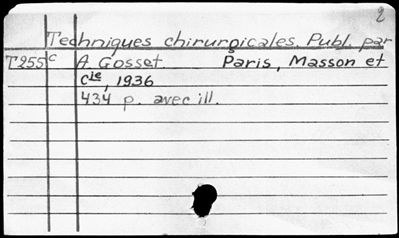 2
Techniques chirurgicales. Publ. par
T255 c A. Gosset Paris, Masson et
Cie, 1936
434 p. avec ill.